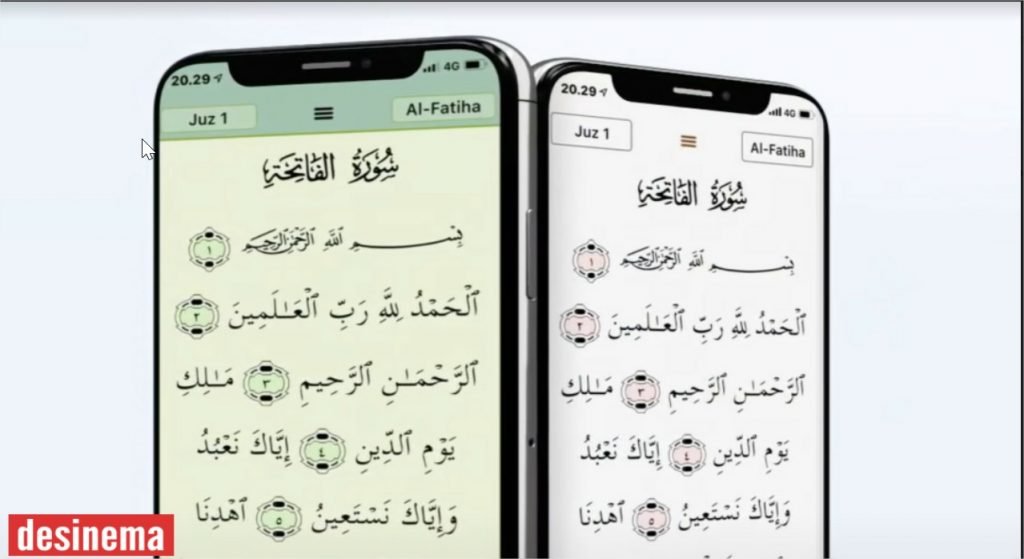 20.29
4G
Juz 1
Al-Fatiha
سُورَةُ الفَاتِحَةِ
بِسْمِ اللَّهِ الرَّحْمَٰنِ الرَّحِيمِ ١
ٱلْحَمْدُ لِلَّهِ رَبِّ ٱلْعَـٰلَمِينَ ٢
ٱلرَّحْمَـٰنِ ٱلرَّحِيمِ ٣ مَـٰلِكِ
يَوْمِ ٱلدِّينِ ٤ إِيَّاكَ نَعْبُدُ
وَإِيَّاكَ نَسْتَعِينُ ٥ ٱهْدِنَا
20.29
4G
Juz 1
Al-Fatiha
سُورَةُ الفَاتِحَةِ
بِسْمِ اللَّهِ الرَّحْمَٰنِ الرَّحِيمِ ١
ٱلْحَمْدُ لِلَّهِ رَبِّ ٱلْعَـٰلَمِينَ ٢
ٱلرَّحْمَـٰنِ ٱلرَّحِيمِ ٣ مَـٰلِكِ
يَوْمِ ٱلدِّينِ ٤ إِيَّاكَ نَعْبُدُ
وَإِيَّاكَ نَسْتَعِينُ ٥ ٱهْدِنَا
desinema